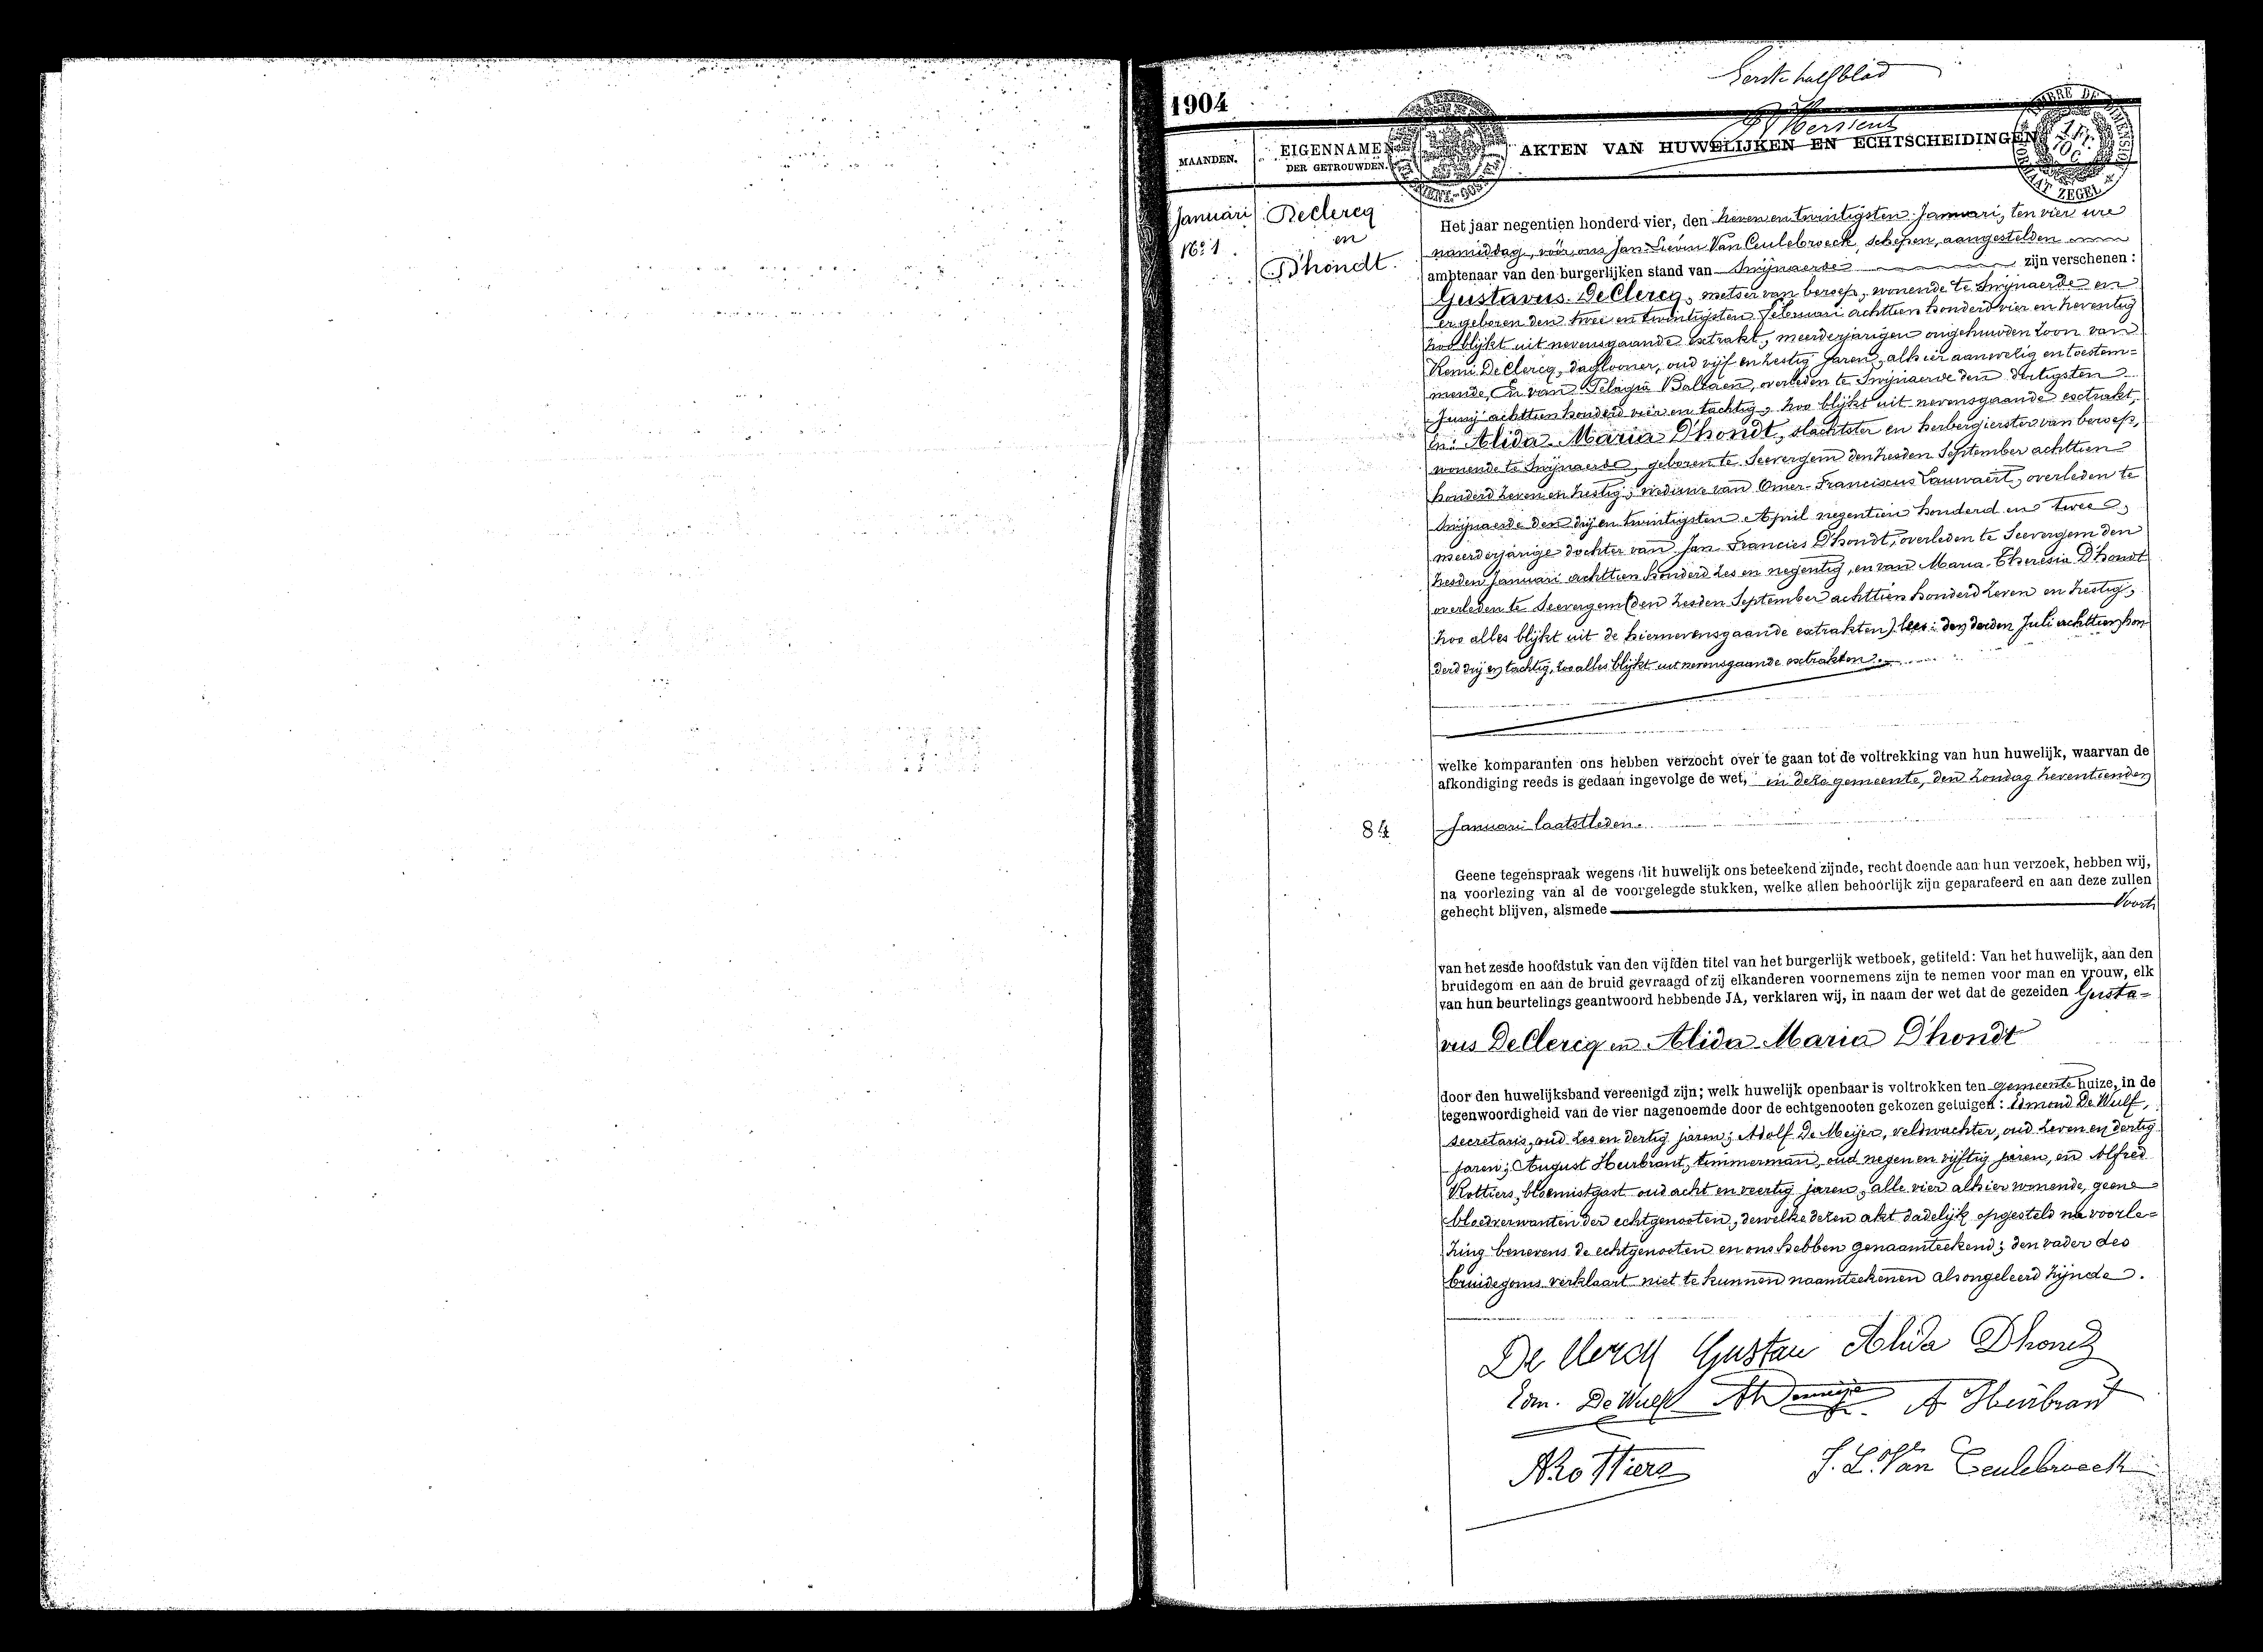 Eerste halfblad
1904
MAANDEN.
EIGENNAMEN
DER GETROUWDEN.
AKTEN VAN HUWELIJKEN EN ECHTSCHEIDINGEN
TIMBRE DE DIMENSION
FORMAAT ZEGEL
1 Fr.
Januari
No. 1.
Declercq
en
D'hondt.
Het jaar negentien honderd vier, den zeven en twintigsten Januari, ten vier ure
namiddag, vóór ons Jan Lievin Van Ceulebroeck, schepen, aangestelden
ambtenaar van den burgerlijken stand van Swijnaerde zijn verschenen :
Gustavus De Clercq, metser van beroep, wonende te Swijnaerde en
er geboren den twee en twintigsten Februari achttien honderd vier en zeventig
zoo blijkt uit nevensgaande extrakt, meerderjarigen ongehuwden zoon van
Remi De Clercq, daglooner, oud vijf en zestig jaren, alhier aanwezig en toestem-
mende, En van Pelagia Baltaen, overleden te Swijnaerde den dertigsten
Junij achttien honderd vier en tachtig, zoo blijkt uit nevensgaande extrakt,
En: Alida Maria D'hondt, slachtster en herbergierster van beroep,
wonende te Swijnaerde, geboren te Seevergem den zesden September achttien
honderd zeven en zestig, weduwe van Omer Franciscus Lauwaert, overleden te
Swijnaerde den drij en twintigsten April negentien honderd en twee,
meerderjarige dochter van Jan Francies D'hondt, overleden te Seevergem den
zesden Januari achttien honderd zes en negentig, en van Maria Theresia D'hondt
overleden te Seevergem (den zesden September achttien honderd zeven en zestig,
zoo alles blijkt uit de hiernevensgaande extrakten) lees: den derden Juli achttien hon-
derd drij en tachtig, zoo alles blijkt uit nevensgaande extrakten.
welke komparanten ons hebben verzocht over te gaan tot de voltrekking van hun huwelijk, waarvan de
afkondiging reeds is gedaan ingevolge de wet, in deze gemeente, den Zondag zeventienden
84
Januari laatstleden.
Geene tegenspraak wegens dit huwelijk ons beteekend zijnde, recht doende aan hun verzoek, hebben wij,
na voorlezing van al de voorgelegde stukken, welke allen behoorlijk zijn geparafeerd en aan deze zullen
gehecht blijven, alsmede
van het zesde hoofdstuk van den vijfden titel van het burgerlijk wetboek, getiteld: Van het huwelijk, aan den
bruidegom en aan de bruid gevraagd of zij elkanderen voornemens zijn te nemen voor man en vrouw, elk
van hun beurtelings geantwoord hebbende JA, verklaren wij, in naam der wet dat de gezeiden Gusta-
vus De Clercq en Alida Maria D'hondt
door den huwelijksband vereenigd zijn; welk huwelijk openbaar is voltrokken ten gemeente huize, in de
tegenwoordigheid van de vier nagenoemde door de echtgenooten gekozen getuigen : Edmond De Wulf,
secretaris, oud zes en dertig jaren; Adolf De Meijer, veldwachter, oud zeven en dertig
jaren; August Heirbrant, timmerman, oud negen en vijftig jaren, en Alfred
Rottiers, bloemistgast oud acht en veertig jaren, alle vier alhier wonende, geene
bloedverwanten der echtgenooten, dewelke dezen akt dadelijk opgesteld na voorle-
zing benevens de echtgenooten en ons hebben genaamteekend; den vader des
bruidegoms verklaart niet te kunnen naamteekenen als ongeleerd zijnde.
De Clercq Gustav Alida Dhondt
Edm. De Wulf A Heirbrant
A Rottiers J. L. Van Ceulebroeck